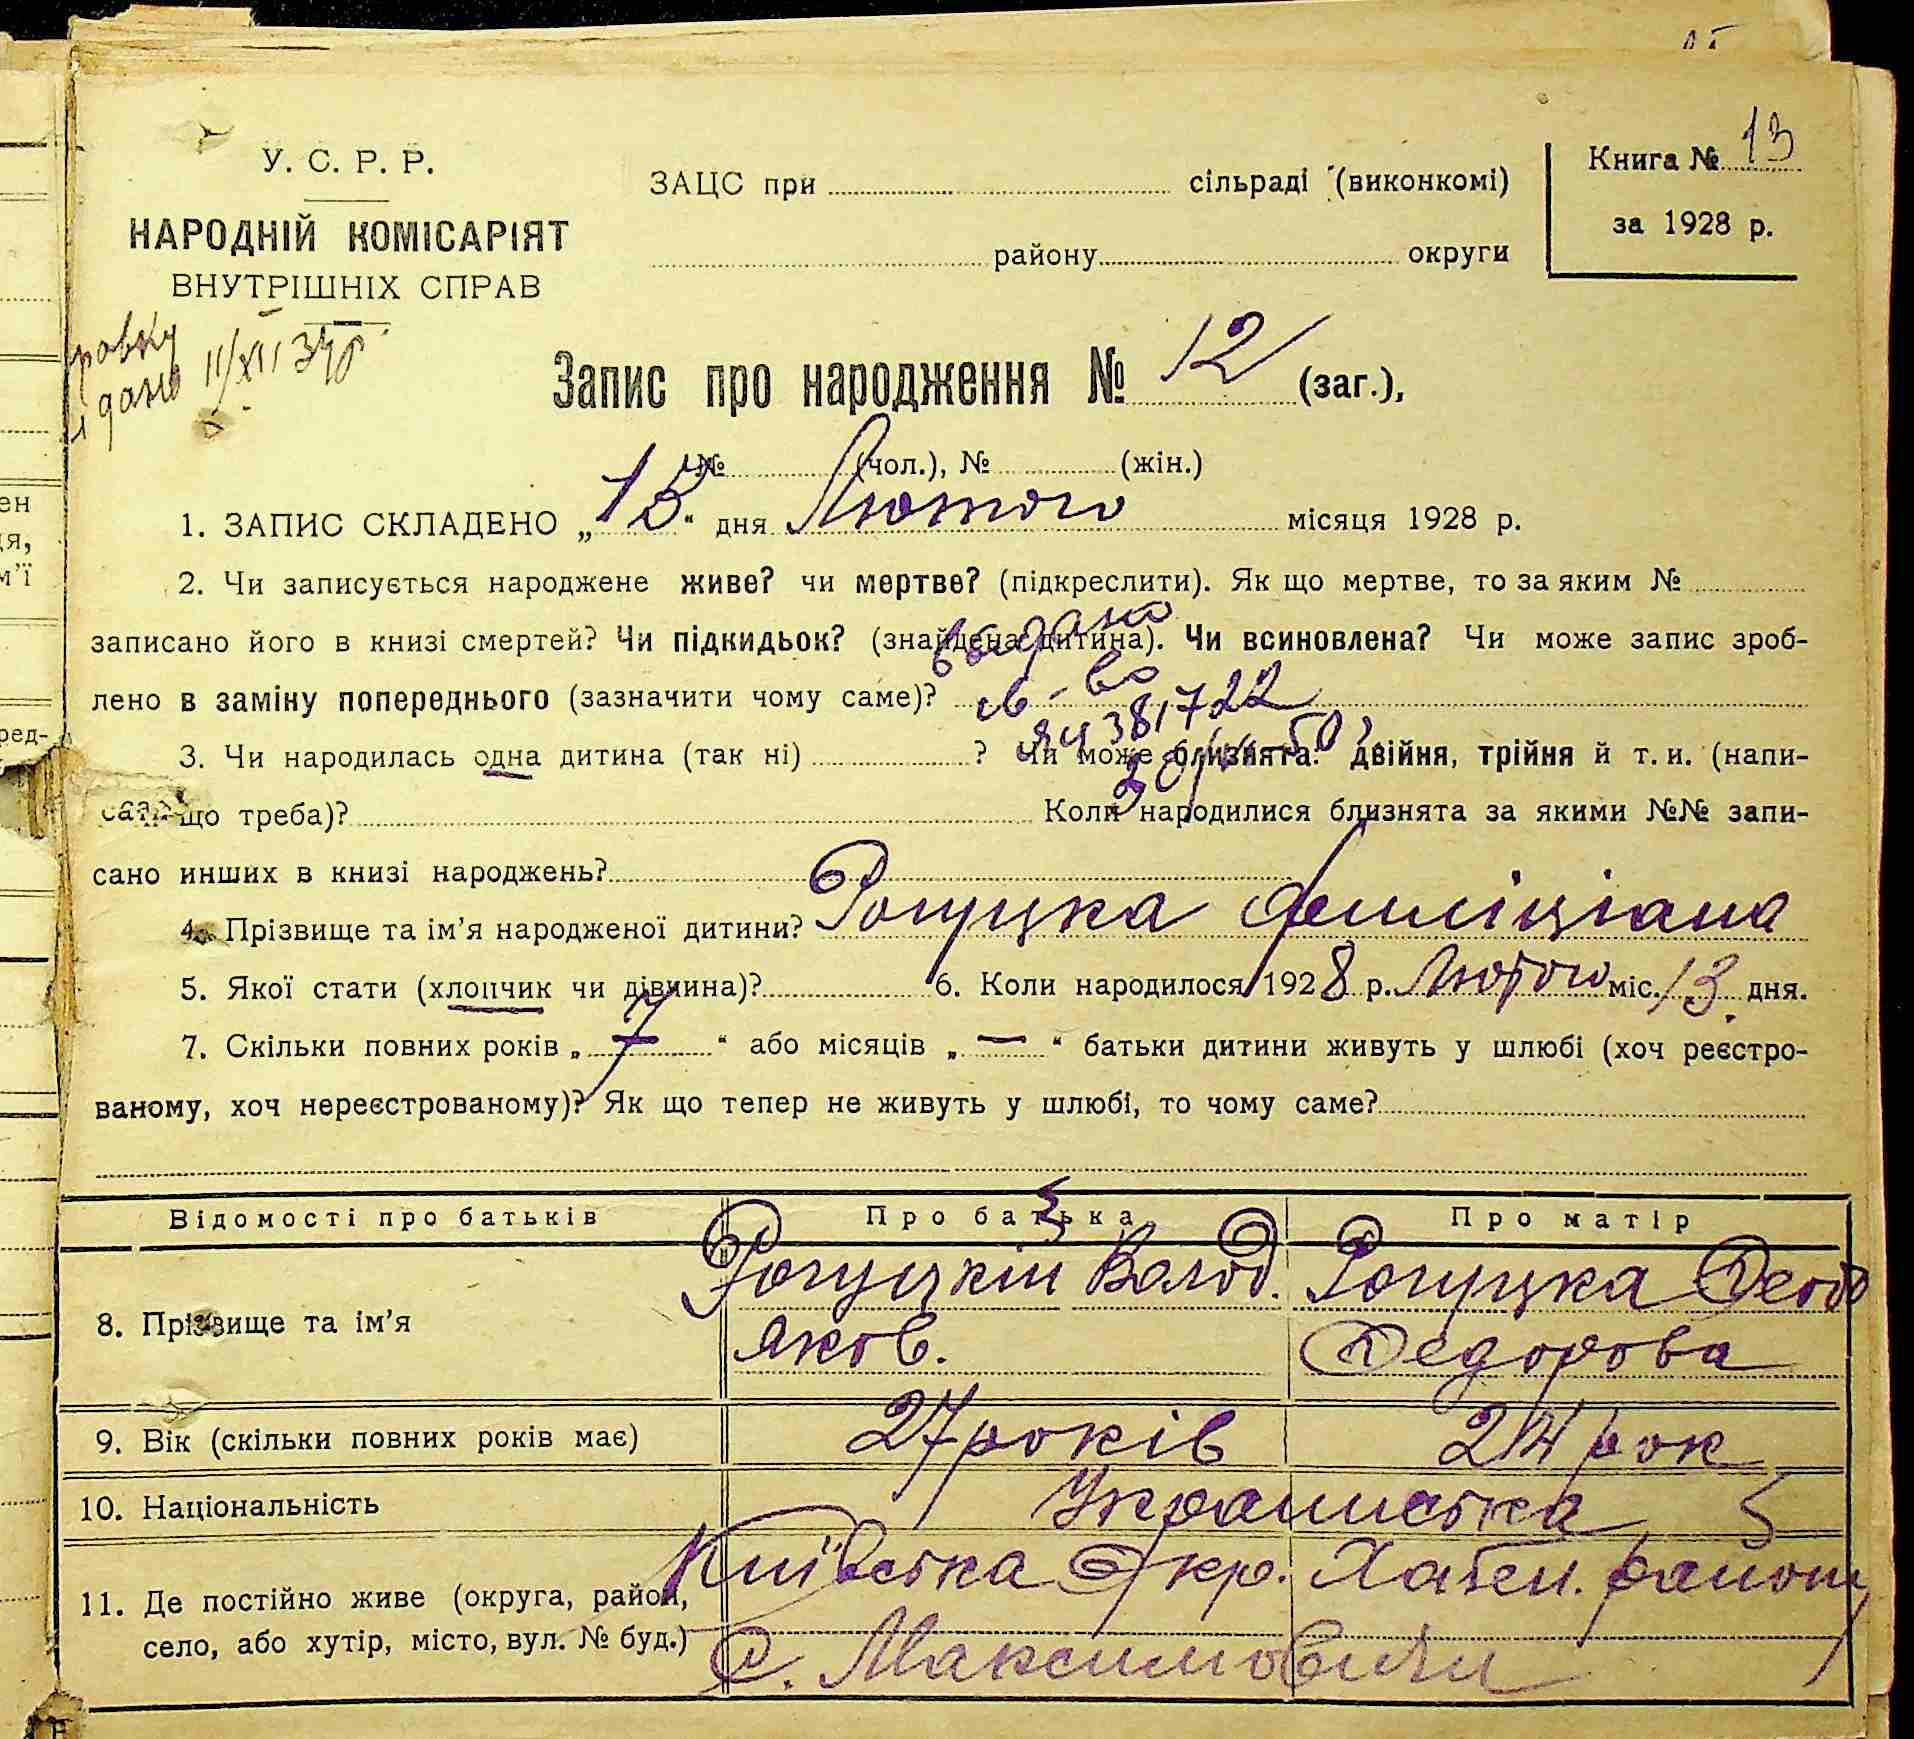 У. С. Р. Р.
НАРОДНІЙ КОМІСАРІЯТ
ВНУТРІШНІХ СПРАВ
ЗАЦС при сільраді (виконкомі)
району округи
Книга № 13
за 1928 р.
дано 11/XII 34 р
Запис про народження № 12 (заг.),
№ (чол.), № (жін.)
1. ЗАПИС СКЛАДЕНО „15“ дня Лютого місяця 1928 р.
2. Чи записується народжене живе? чи мертве? (підкреслити). Як що мертве, то за яким №
записано його в книзі смертей? Чи підкидьок? (знайдена дитина). Чи всиновлена? Чи може запис зроб-
видано
лено в заміну попереднього (зазначити чому саме)?
св-во
ЯЧ 381722
3. Чи народилась одна дитина (так ні) ? Чи може близнята: двійня, трійня й т. и. (напи-
сати що треба)? Коли народилися близнята за якими №№ запи-
сано инших в книзі народжень?
4. Прізвище та ім’я народженої дитини? Рогуцка Феліціана
5. Якої стати (хлопчик чи дівчина)? 6. Коли народилося 1928 р. Лютого міс. 13 дня.
7. Скільки повних років „7“ або місяців „—“ батьки дитини живуть у шлюбі (хоч реєстро-
ваному, хоч нереєстрованому)? Як що тепер не живуть у шлюбі, то чому саме?
Відомості про батьків Про батька Про матір
8. Прізвище та ім’я Рогуцкій Волод. Яков. Рогуцка Феод Федорова
9. Вік (скільки повних років має) 27 років 24 рок
10. Національність Украинска
11. Де постійно живе (округа, район, Київска Окр. Хабен. район
село, або хутір, місто, вул. № буд.) С. Максимовичи